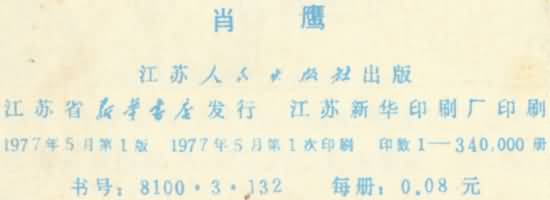 肖 鹰
江苏人民出版社出版
江苏省新华书店发行 江苏新华印刷厂印刷
1977年5月第1版 1977年5月第1次印刷 印数1—340,000册
书号：8100·3·132 每册：0.08元